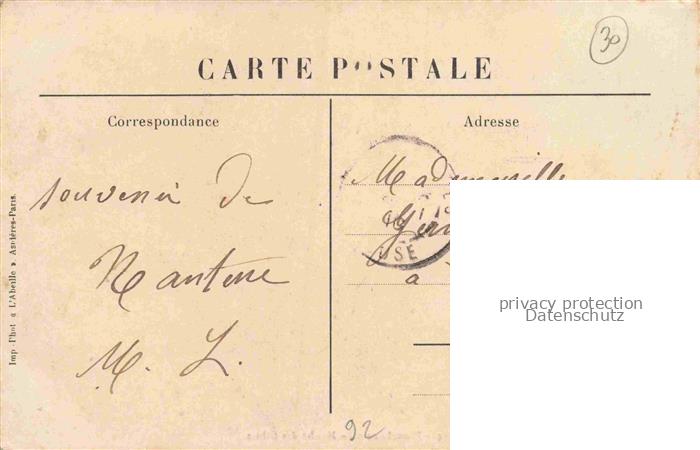 30
CARTE POSTALE
Correspondance
Adresse
souvenir de
Nanterre
M. L.
Mademoiselle
à
USE
Imp. Phot « L'Abeille » Asnières-Paris.
privacy protection
Datenschutz
92